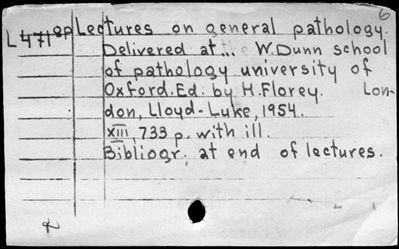 6
L 471 gp Lectures on general pathology.
Delivered at... the W. Dunn school
of pathology university of
Oxford. Ed. by H. Florey. Lon-
don, Lloyd-Luke, 1954.
XIII, 733 p. with ill.
Bibliogr. at end of lectures.